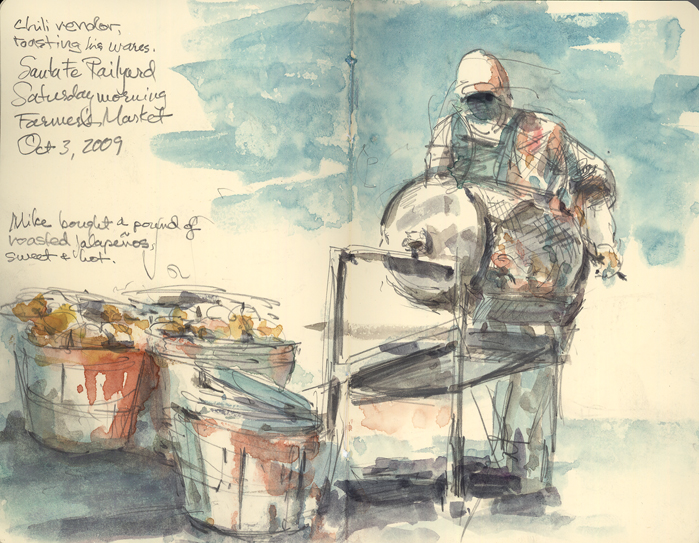 Chili vendor,
roasting his wares.
Santa Fe Railyard
Saturday morning
Farmers Market
Oct 3, 2009
Mike bought a pound of
roasted jalapeños,
sweet & hot.